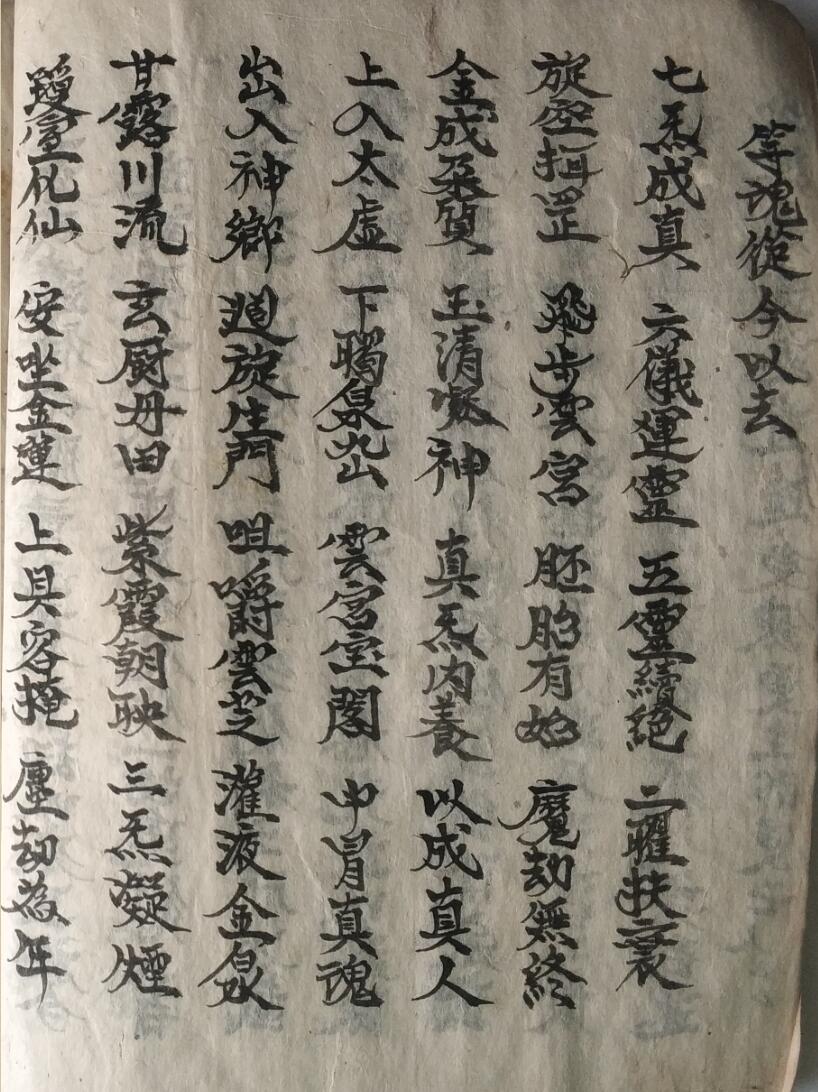 等魂從今以去
七炁成真 六儀運靈 五靈續絕 二曜扶衰
旋空揖罡 飛步雲宮 胚胎有始 魔劫無終
金成柔質 玉清凝神 真炁內養 以成真人
上入太虛 下矚泉 雲宮室閣 中冒真魂
出入神鄉 迴旋生門 咀嚼雲芝 灌液金泉
甘露川流 玄厨丹田 紫霞朝映 三炁凝煙
靈化仙 安坐金蓮 上具容掩 塵劫為年